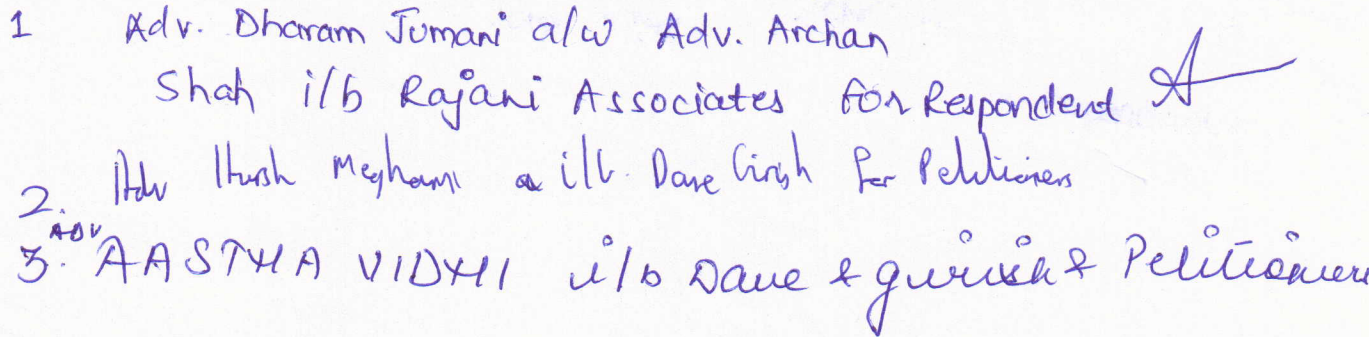 1 Adv. Dharam Jumani a/w Adv. Archan
Shah i/b Rajani Associates for Respondent
2. Adv Hursh Meghani i/b. Dave Girish for Petitioners
3. ADV AASTHA VIDHI i/b Dave & girish & Petitioners